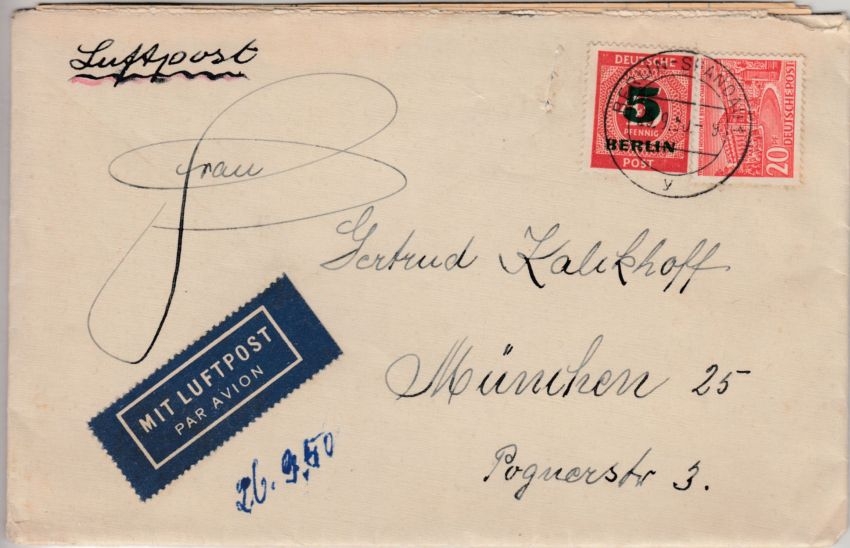 Luftpost
Frau
Gertrud Kalkhoff
München 25
Pognerstr 3.
MIT LUFTPOST
PAR AVION
26.9.50
DEUTSCHE
5
PFENNIG
BERLIN
POST
20
DEUTSCHE POST
BERLIN-SPANDAU
y